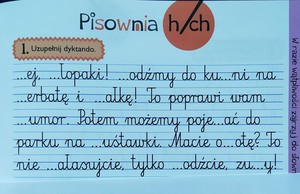 Pisownia h/ch
1. Uzupełnij dyktando.
...ej, ...łopaki! ...odźmy do ku...ni na
...erbatę i ...ałkę! To poprawi wam
...umor. Potem możemy poje...ać do
parku na ...uśtawki. Macie o...otę? To
nie ...ałasujcie, tylko ...odźcie, zu...y!
W razie wątpliwości zajrzyj do